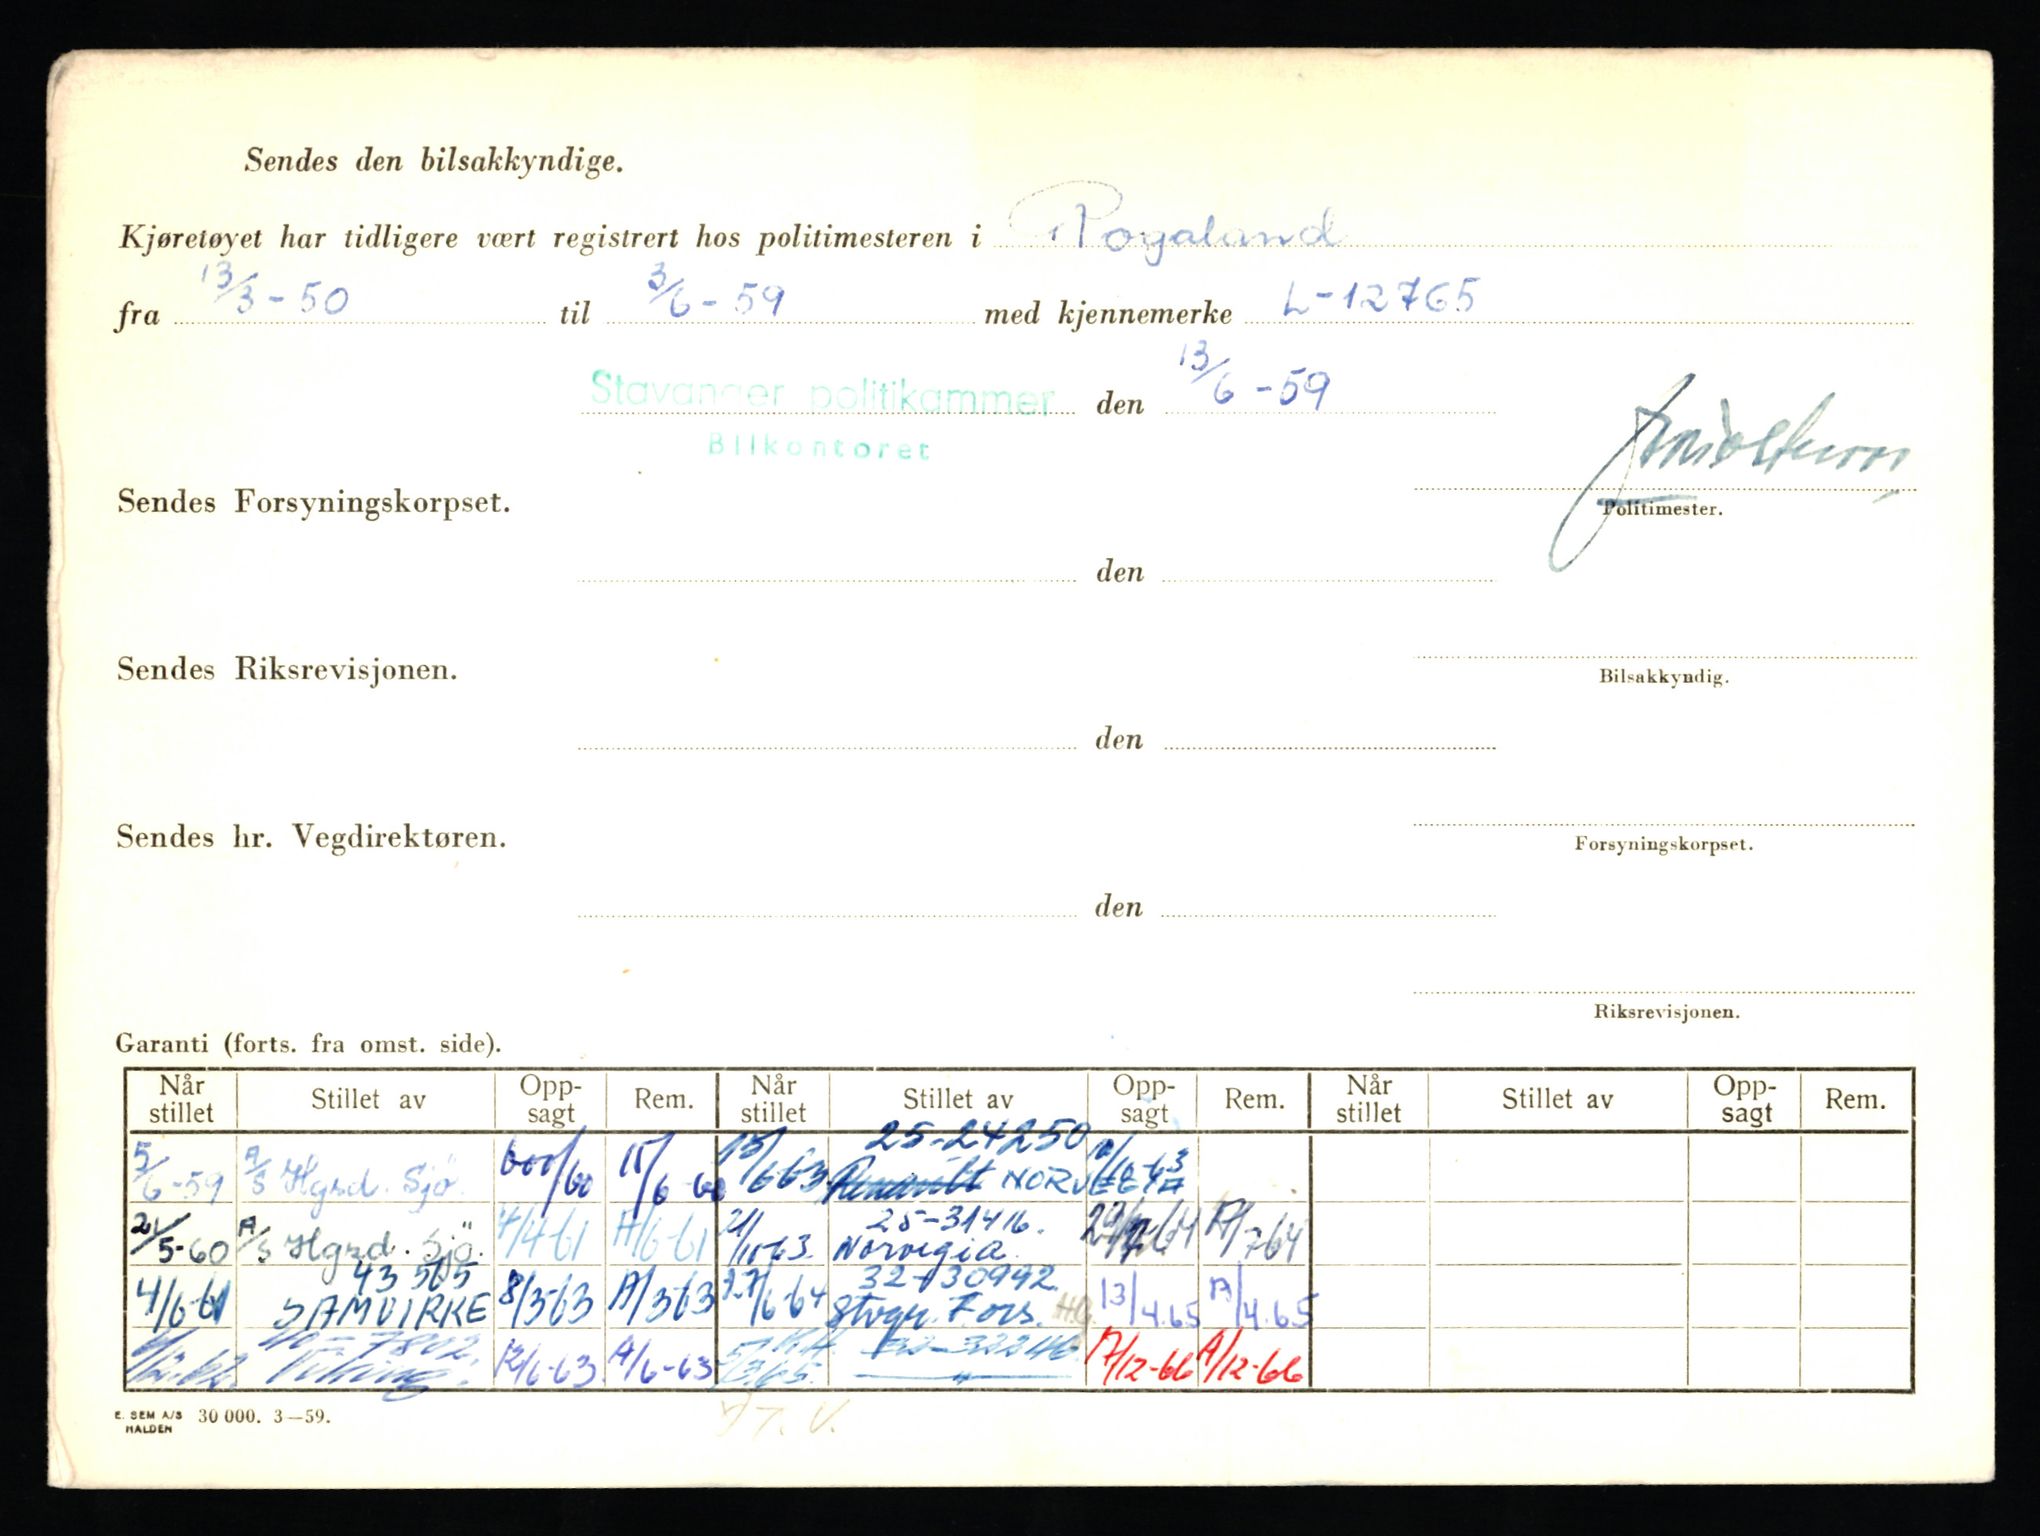 Sendes den bilsakkyndige.
Kjøretøyet har tidligere vært registrert hos politimesteren i Rogaland
fra 13/3-50 til 3/6-59 med kjennemerke L-12765
Stavanger politikammer den 13/6-59
Bilkontoret
Sendes Forsyningskorpset.
Politimester.
den
Sendes Riksrevisjonen.
Bilsakkyndig.
den
Sendes hr. Vegdirektøren.
Forsyningskorpset.
den
Riksrevisjonen.
Garanti (forts. fra omst. side).
Når stillet Stillet av Opp-sagt Rem. Når stillet Stillet av Opp-sagt Rem. Når stillet Stillet av Opp-sagt Rem.
25-24250
5/6-59 A/S Hgsd. Sjø /60 15/6-60 13/6-63 NORV
25-31416.
21/5-60 A/S Hgsd. Sjö. 4/4-61 A/6-61 Norvegia. A/7-64
43565 32-30992
4/6-61 SAMVIRKE 8/3-63 A/3-63 27/6-64 Stvgr. Fors. 13/4.65 A/4.65
-7802. 32-32246
Viking. 12/6-63. A/6-63 5/3.65. — " — A/12-66 A/12-66
E. SEM A/S HALDEN 30 000. 3—59.
T. V.